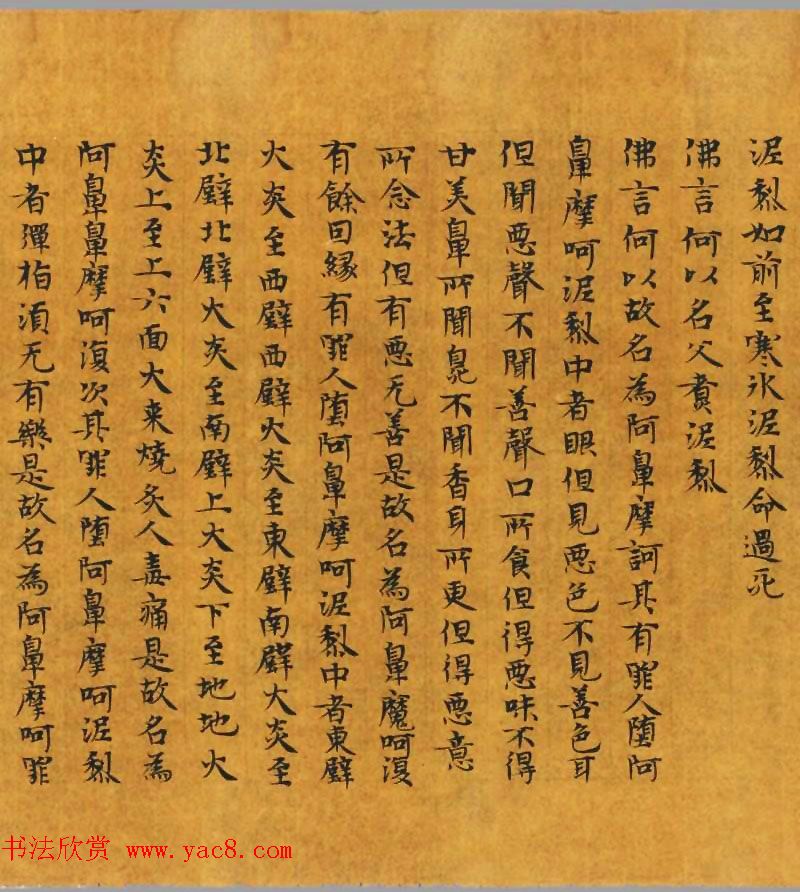 泥犁如前至寒氷泥犁命過死
佛言何以名父賁泥犁
佛言何以故名為阿鼻摩訶其有罪人墮阿
鼻摩呵泥犁中者眼但見惡色不見善色耳
但聞惡聲不聞善聲口所食但得惡味不得
甘美鼻所聞臰不聞香身所更但得惡意
所念法但有惡无善是故名為阿鼻魔呵復
有餘因緣有罪人墮阿鼻摩呵泥犁中者東壁
火炎至西壁西壁火炎至東壁南壁火炎至
北壁北壁火炎至南壁上火炎下至地地火
炎上至上六面火来燒炙人毒痛是故名為
阿鼻鼻摩呵復次其罪人墮阿鼻摩呵泥犁
中者彈指湏无有樂是故名為阿鼻摩呵罪
书法欣赏 www.yac8.com